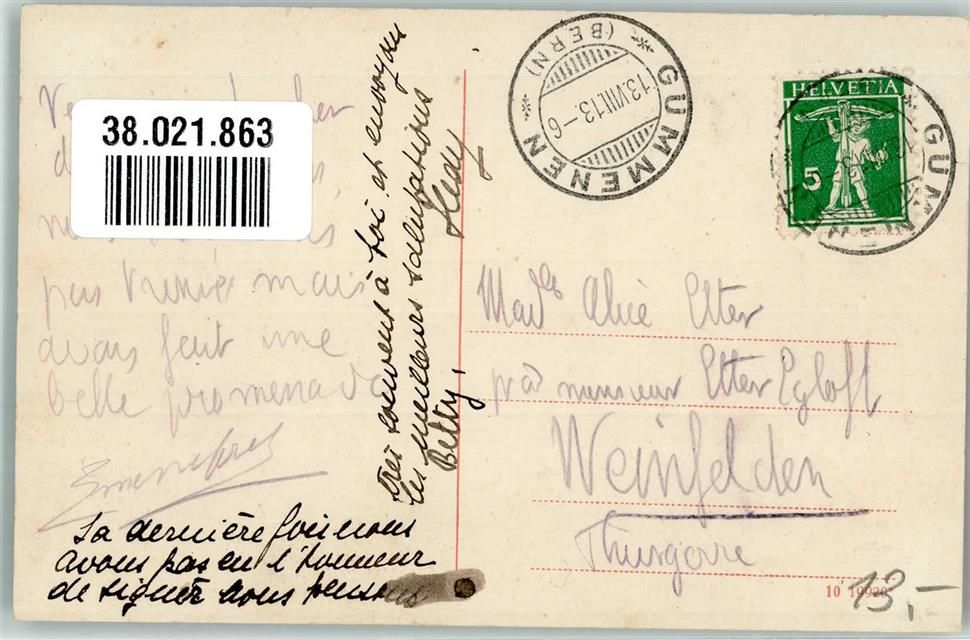 38.021.863
pas                 mais
avons fait une
belle promenade
La dernière fois nous
avons pas eu l'honneur
de signer nous pensons
très souvent à toi et envoyons
les meilleurs salutations
Betty.
GÜMMENEN
(BERN)
13.VIII.13.-6
HELVETIA
5
GÜM
Madlle Alice Etter
par monsieur Etter Egloff
Weinfelden
Thurgovie
10 19920
13,-